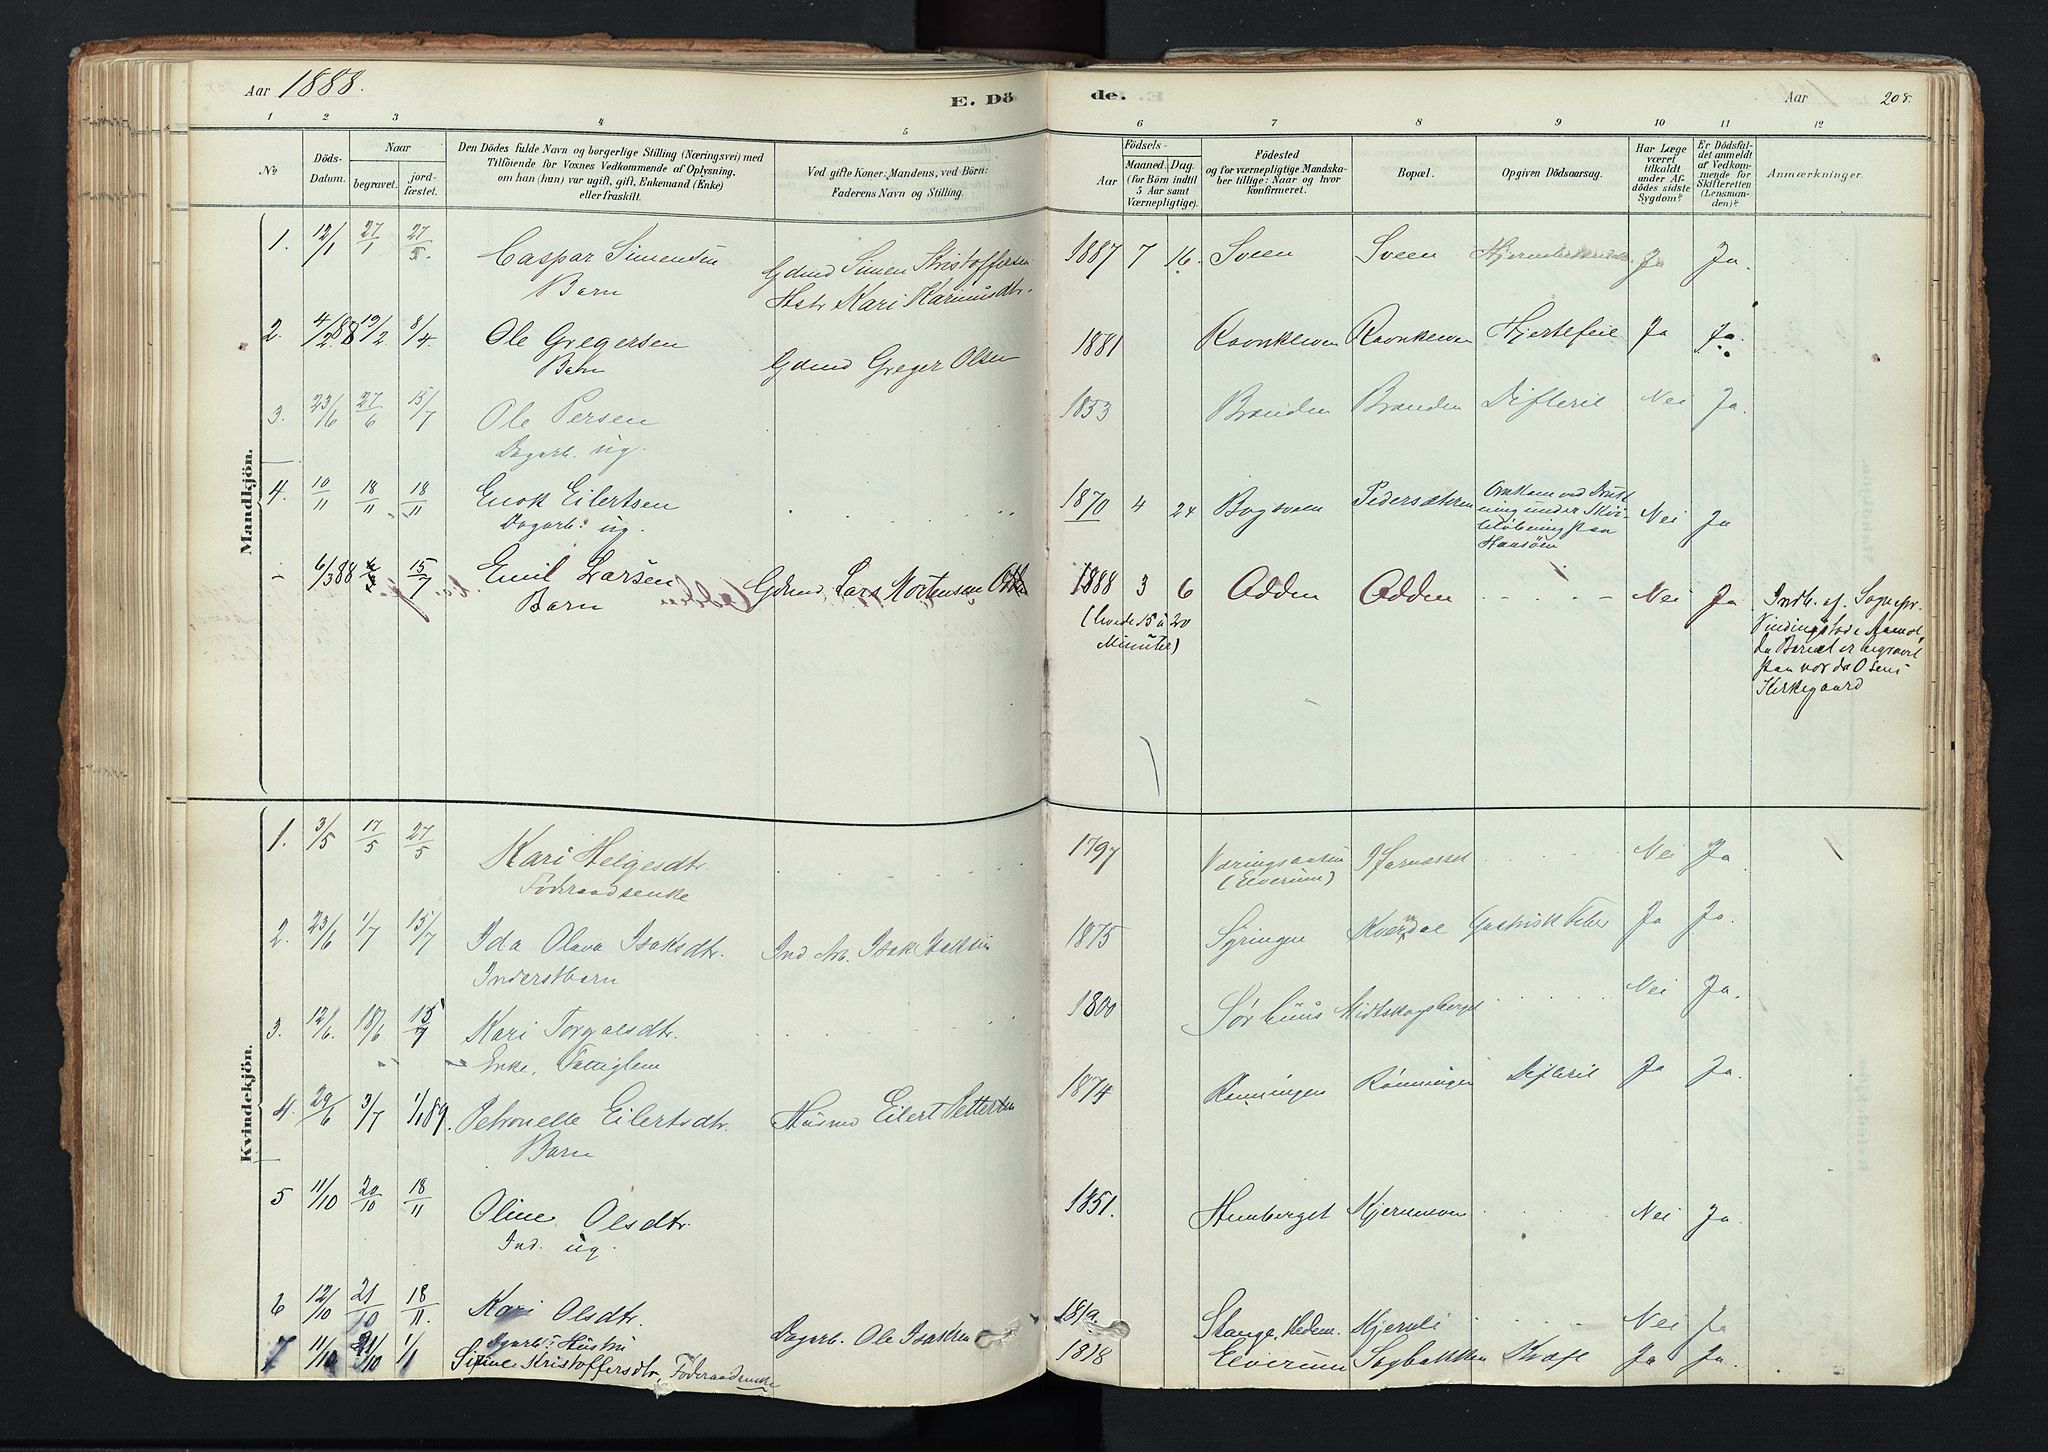 Aar 1888.
E. Dö
de.
Aar 208.
1 2 3 4 5 6 7 8 9 10 11 12
No
Döds-Datum.
Naar
begravet.
jord-fæstet.
Den Dödes fulde Navn og borgerlige Stilling (Næringsvei) med
Tilföiende for Voxnes Vedkommende af Oplysning,
om han (hun) var ugift, gift, Enkemand (Enke)
eller fraskilt.
Ved gifte Koner: Mandens, ved Börn:
Faderens Navn og Stilling.
Födsels-
Aar
Maaned. Dag.
(for Börn indtil
5 Aar samt
Værnepligtige).
Födested
og for værnepligtige Mandska-
ber tillige: Naar og hvor
konfirmeret.
Bopæl.
Opgiven Dödsaarsag.
Har Læge
været
tilkaldt
under Af-
dödes sidste
Sygdom?
Er Dödsfal-
det anmeldt
af Vedkom-
mende for
Skifteretten
(Lensman-
den)?
Anmærkninger.
Mandkjön.
1. 12/1 27/1 27/5. Caspar Simensen Gdmd Simen Kristoffersen 1887 7 16. Sveen Sveen Ja Ja.
Barn Hstr Kari
2. 4/2 88 19/2 8/4. Ole Gregersen Gdmd Greger Olsen 1881 Ravnkleven Ravnkleven Hjertefeil Ja Ja.
Barn
3. 23/6 27/6 15/7 Ole Persen 1853 Branden Branden Difterit Nei Ja.
Dagarb. ug.
4. 10/11 18/11 18/11 Enok Eilertsen 1870 4 24 Pedersæteren Omkom ved Nei Ja
Dagarb. ug. under
Hansöen
- 6/3 88 15/7 Emil Larsen Gdmd. Lars Mortensen 1888 3 6 Odden Odden - - - - Nei Ja Indb. af Sognepr.
Barn (levede 15 à 20
Minuter)
da Barnet er begravet
paa nordre Osens
Kirkegaard
Kvindekjön.
1. 3/5 17/5 27/5 Kari Helgesdtr. 1797 Væringsaasen Nei Ja
Föderaadsenke (Elverum)
2. 23/6 1/7 15/7 Ida Olava Isaksdtr. Ind. Arb. Isak Isaksen 1875 Gyringen Kverndal Gastrisk Feber Ja Ja.
Inderstbarn
3. 12/6. 18/6 15/7 Kari Torgalsdtr. 1800 Sörhuus Midtskogsberget Nei Ja.
Enke, Fattiglem
4. 29/6 3/7 1/1 89. Petronelle Eilertsdtr. Husmd Eilert Pettersen 1874 Rönningen Rönningen Difterit Ja Ja.
Barn
5 11/10 20/10 18/11 Oline Olsdtr. 1851. Hemberget Kjernmoen Nei Ja.
Ind. ug.
6 12/10 21/10 18/11. Kari Olsdtr. Dagarb. Ole Isaksen Stange, Hedem. Kjernli Nei Ja
Dgarb. Hustru
7 11/10 21/10 1/1 Sifine Kristoffersdtr, Föderaadsenke 1818 Elverum Sagbakken Kræft Ja Ja.